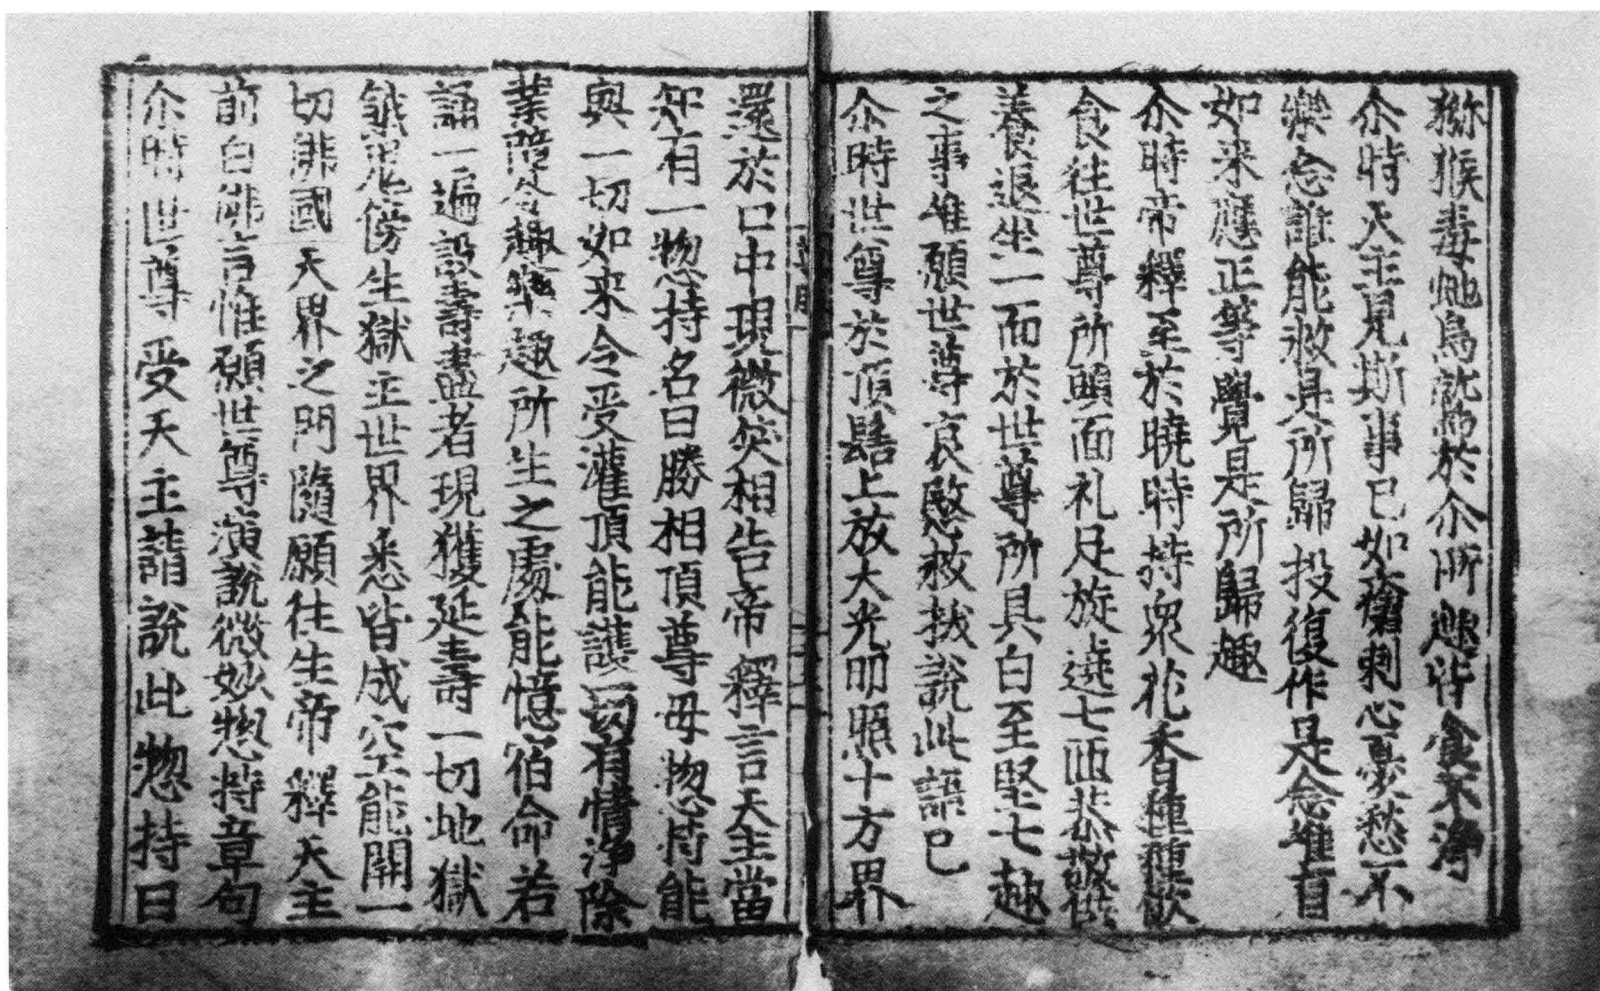 猕猴毒虵鳥鷲爲於尒所趣皆食不淨
尒時天主見斯事已如𥎞剌心憂愁不
樂念誰能救是所歸投復作是念惟有
如来應正等覺是所歸趣
尒時帝釋至於曉時持衆花香種種飲
食往世尊所頭面礼足旋遶七匝恭敬供
養退坐一面於世尊所具白至堅七趣
之事惟願世尊哀愍救拔說此語已
尒時世尊於頂髻上放大光明照十方界
還於口中現微笑相告帝釋言天主當
知有一揔持名曰勝相頂尊母揔持能
與一切如来令受灌頂能護一切有情淨除
業障令趣樂趣所生之處能憶宿命若
誦一遍設壽盡者現獲延壽一切地獄
餓鬼傍生獄主世界悉皆成空能開一
切佛國天界之門隨願往生帝釋天主
前白佛言惟願世尊演說微妙揔持章句
尒時世尊受天主請說此揔持曰